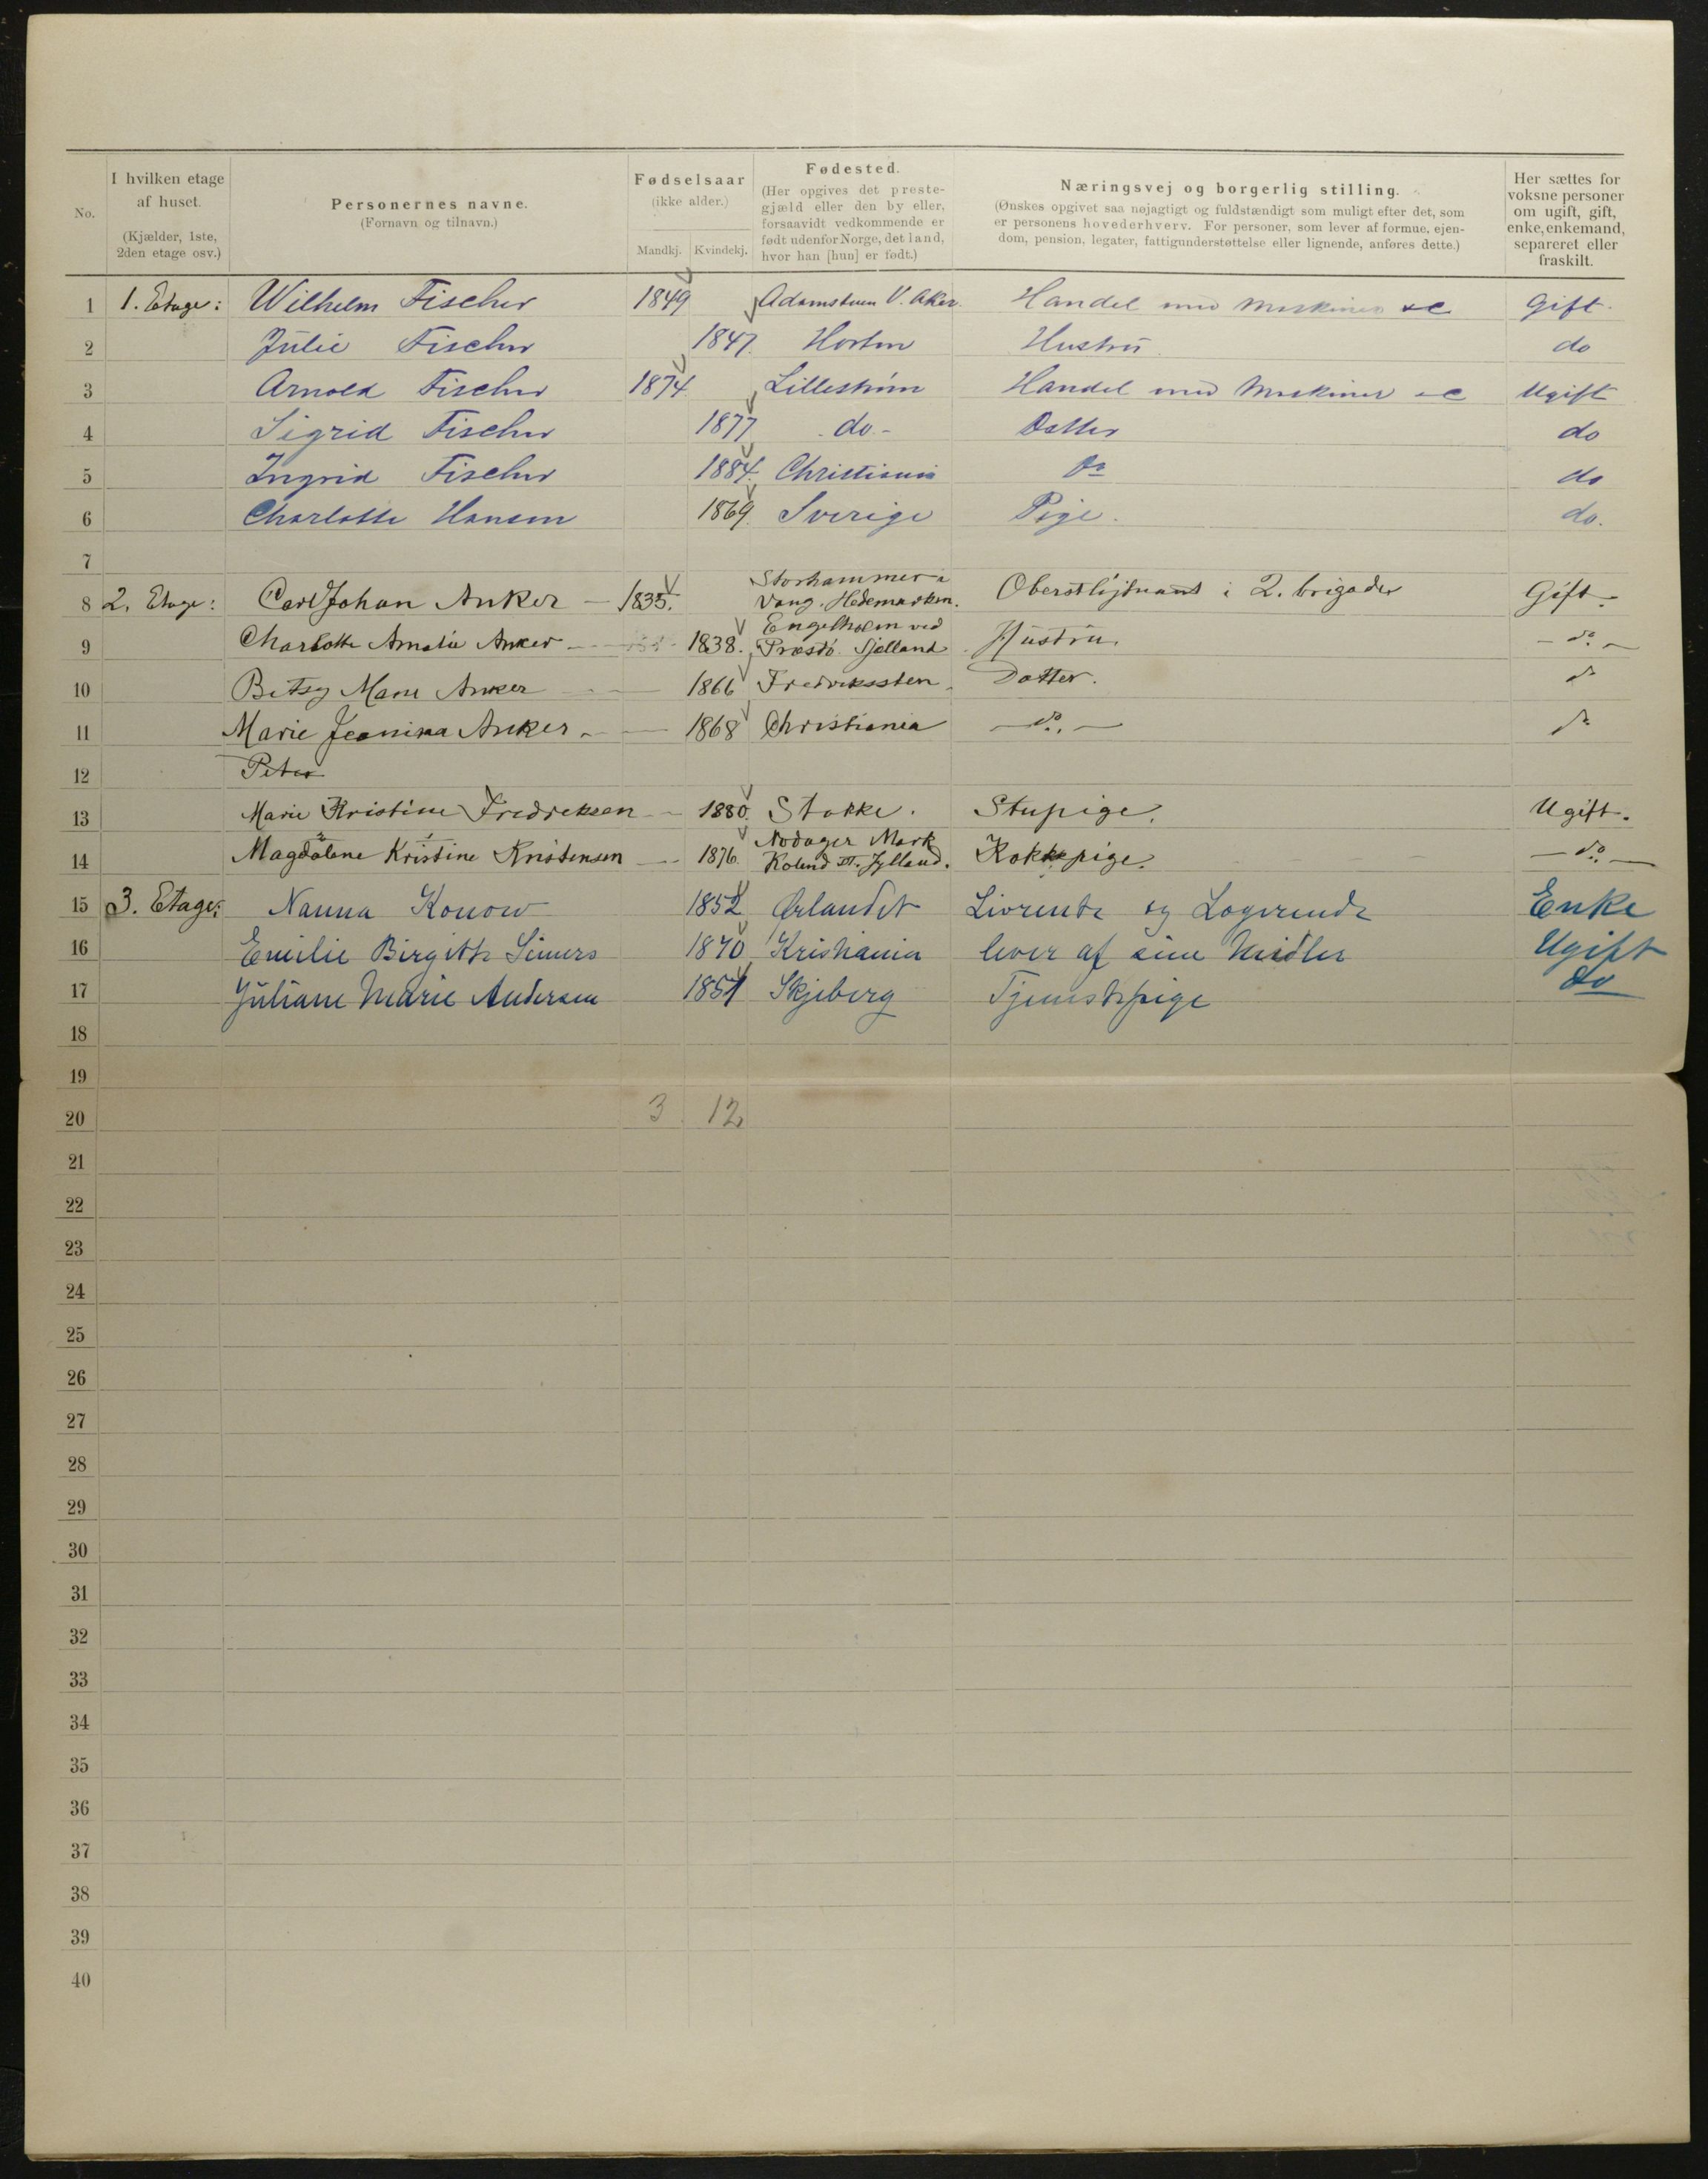 No.
I hvilken etage af huset. (Kjælder, 1ste, 2den etage osv.)
Personernes navne. (Fornavn og tilnavn.)
Fødselsaar (ikke alder.)
Mandkj. Kvindekj.
Fødested.
(Her opgives det preste-
gjæld eller den by eller,
forsaavidt vedkommende er
født udenfor Norge, det land,
hvor han [hun] er født.)
Næringsvej og borgerlig stilling.
(Ønskes opgivet saa nøjagtigt og fuldstændigt som muligt efter det, som
er personens hovederhverv. For personer, som lever af formue, ejen-
dom, pension, legater, fattigunderstøttelse eller lignende, anføres dette.)
Her sættes for
voksne personer
om ugift, gift,
enke, enkemand,
separeret eller
fraskilt.
1 1. Etage: Wilhelm Fischer 1849 Adamstuen V. Aker. Handel med Maskiner &c Gift.
2 Julie Fischer 1847. Horten Hustru do
3 Arnold Fischer 1874 Lillestrøm Handel med Maskiner &c Ugift
4 Sigrid Fischer 1877 do.- Datter do
5 Ingrid Fischer 1884. Christiania Do do
6 Charlotte Hansen 1869 Sverige Pige. do.
7
8 2. Etage: Carl Johan Anker — 1835. Storhammer i Vang. Hedemarken. Oberstløjtnant i 2. brigade Gift.
9 Charlotte Amalie Anker 1838. Engelholm ved Præstø Sjælland Hustru. — do. —
10 Betsy Marie Anker 1866 Fredrikssten. Datter. do
11 Marie Jeanina Anker 1868 Christiania — do. — do
12 Peter
13 Marie Kristine Fredriksen 1880. Stokke. Stupige. Ugift.
14 Magdalene Kristine Kristensen 1876. Mark Jylland. Kokkepige. — do —
15 3. Etage: Nanna Konow 1852 Ørlandet Livrente og Logerende Enke
16 Emilie Birgitte 1870 Kristiania lever af sine Midler Ugift
17 Juliane Marie Andersen 1851 Skjeberg Tjenestepige do
18
19
20 3 12
21
22
23
24
25
26
27
28
29
30
31
32
33
34
35
36
37
38
39
40